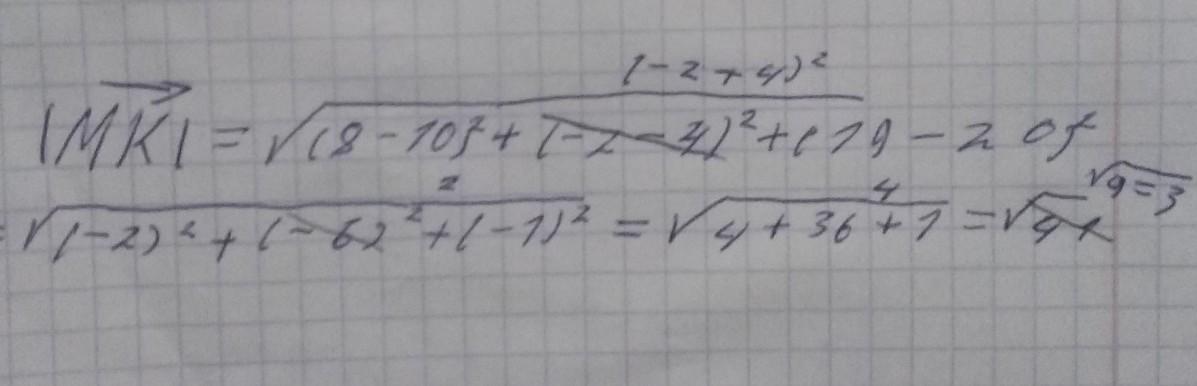 (-2+4)²
|MK| = √(8-10)²+(-2-4)²+(19-20)²
2 4 √9=3
= √(-2)²+(-6)²+(-1)² = √4+36+1 = √41